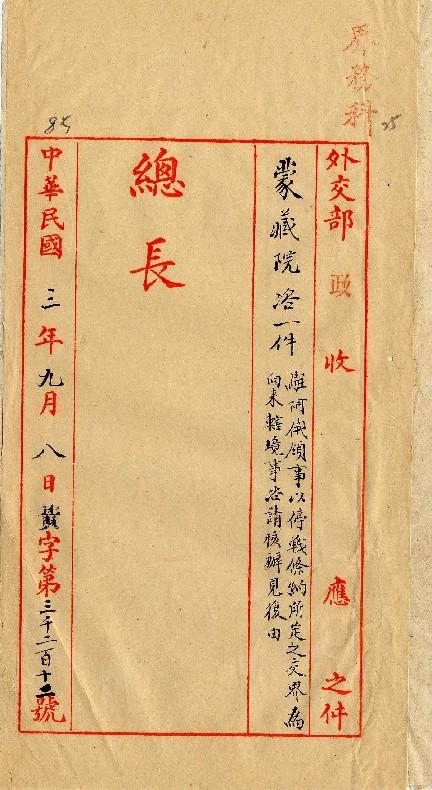 界務科
85
25
外交部 政 收 應 之件
蒙藏院咨一件
阿俄領事以停戰條約所定之交界為
向來轄境事咨請核辦見復由
總長
中華民國三年九月八日黃字第三千二百十二號